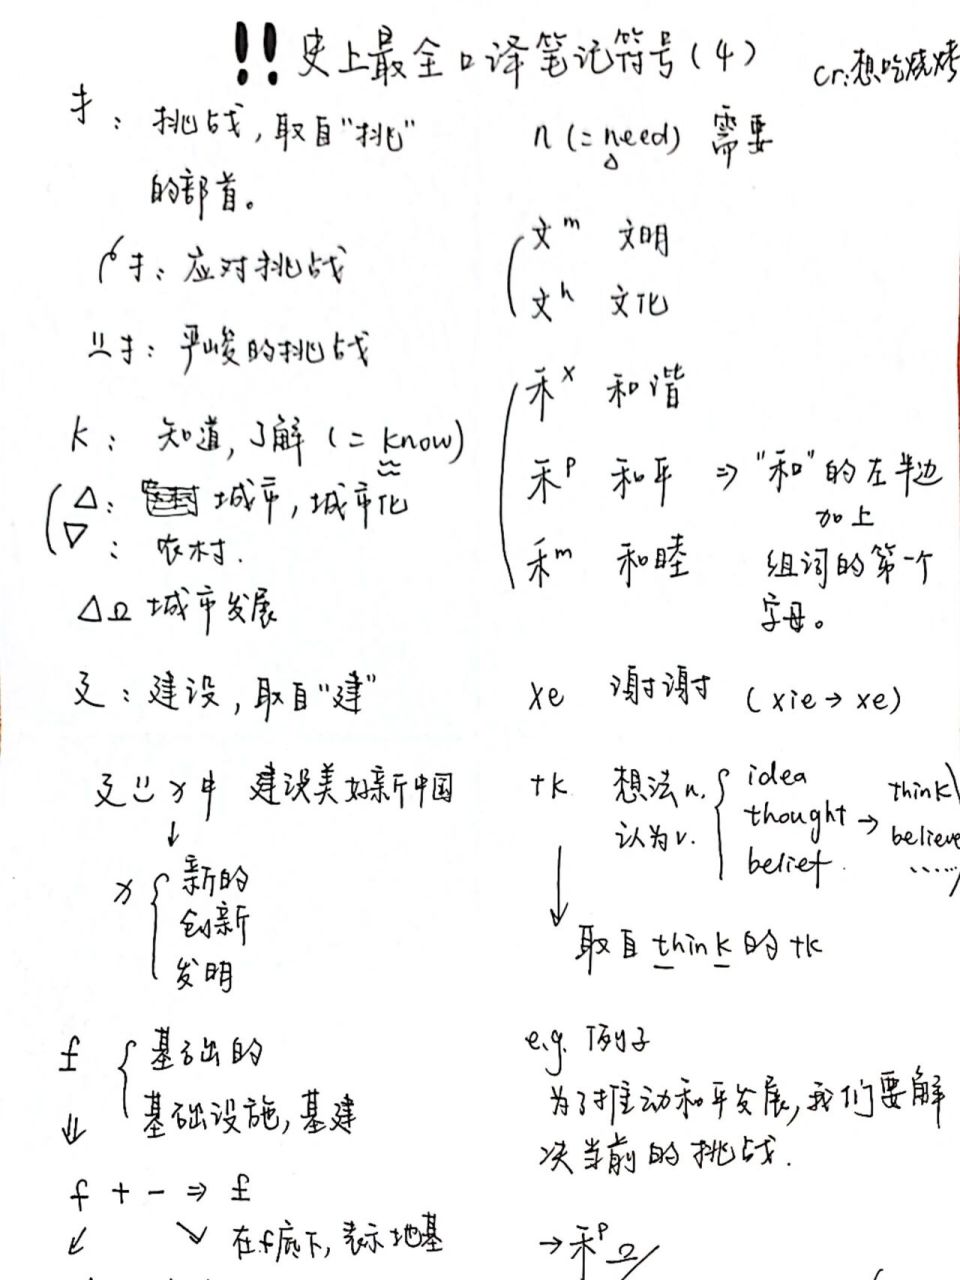 !! 史上最全口译笔记符号(4)
cr:想吃烧烤
扌: 挑战,取自"挑"
的部首。
扌: 应对挑战
扌: 严峻的挑战
k: 知道,了解 (= know)
△: 城市,城市化
▽: 农村.
△Ω 城市发展
廴: 建设,取自"建"
建设美好新中国
↓
新的
创新
发明
f 基础的
基础设施,基建
⇓
f + - ⇒ f
↙ ↘ 在f底下,表示地基
n (= need) 需要
文m 文明
文h 文化
禾x 和谐
禾p 和平 ⇒ "和"的左半边
加上
禾m 和睦 组词的第一个
字母。
xe 谢谢 (xie → xe)
tk 想法n. idea
认为v. thought → think
belief believe
......
↓
取自 think 的 tk
e.g. 例子
为了推动和平发展,我们要解
决当前的挑战.
→ 禾p Ω/